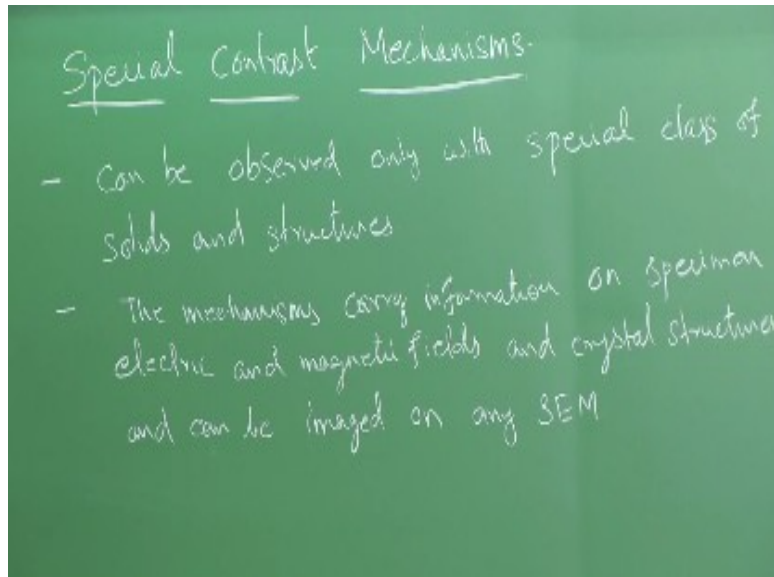 Special Contrast Mechanisms.
- Can be observed only with special class of
solids and structures
- The mechanisms carry information on specimen
electric and magnetic fields and crystal structures
and can be imaged on any SEM